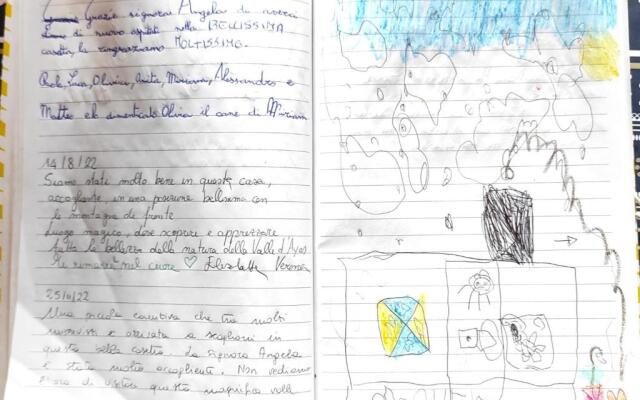 Grazie signora Angela di averci
di nuovo ospitati nella BELLISSIMA
casetta, la ringraziamo MOLTISSIMO.
Luca, Olivia, Anita, Miriam, Alessandro e
Matteo e la Olivia il cane di Miriam
14/8/22
Siamo stati molto bene in questa casa,
accogliente, in una posizione bellissima con
le montagne di fronte
Luogo magico, dove scoprire e apprezzare
tutta la bellezza della natura della Valle d'Ayas
Ti rimarrà nel cuore ♡ Elisabetta Verona
25/10/22
Una piccola comitiva che tra molti
è arrivata a
questa bella casetta. La Signora Angela
è stata molto accogliente. Non vediamo
l'ora di questa magnifica valle